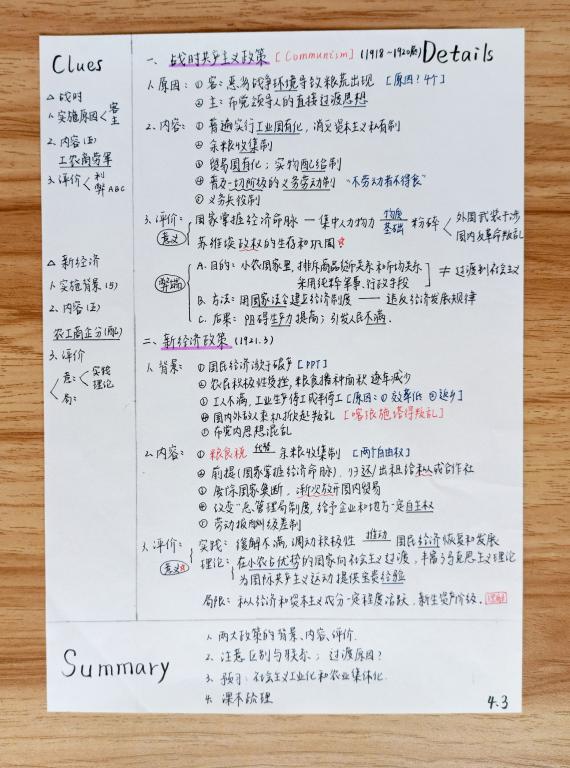 Clues
△ 战时
1. 实施原因 客 主
2. 内容 (五)
工农商劳军
3. 评价 利 弊 ABC
△ 新经济
1. 实施背景 (5)
2. 内容 (五)
农工商企分(配)
3. 评价
意: 实践 理论
局:
Details
一、战时共产主义政策 [Communism] (1918~1920底)
1. 原因: ① 客: 恶劣战争环境导致粮荒出现 [原因?4个]
② 主: 布党领导人的直接过渡思想
2. 内容: ① 普遍实行工业国有化, 消灭资本主义私有制
② 余粮收集制
③ 贸易国有化; 实物配给制
④ 普及一切阶级的义务劳动制 "不劳动者不得食"
⑤ 义务兵役制
3. 评价: 国家掌握经济命脉 — 集中人力物力 物质基础 粉碎 外国武装干涉 国内反革命叛乱
意义 苏维埃政权的生存和巩固
弊端 A. 目的: 小农国家里, 排斥商品货币关系和市场关系
采用纯粹军事.行政手段 ≠ 过渡到社会主义
B. 方法: 用国家法令建立经济制度 —— 违反经济发展规律
C. 后果: 阻碍生产力提高; 引发人民不满.
二、新经济政策 (1921.3)
1. 背景: ① 国民经济濒于破产 [PPT]
② 农民积极性受挫, 粮食播种面积逐年减少
③ 工人不满, 工业生产停工或半停工 [原因: ① 效率低 ② 返乡]
④ 国内外敌人乘机掀起叛乱 [喀琅施塔得叛乱]
⑤ 布党内思想混乱
2. 内容: ① 粮食税 代替 余粮收集制 [两个自由权]
② 前提(国家掌握经济命脉), 归还/出租给私人或合作社
③ 废除国家垄断, 渐次放开国内贸易
④ 改变"总管理局制度, 给予企业和地方一定自主权
⑤ 劳动报酬级差制
3. 评价: 实践: 缓解不满, 调动积极性 推动 国民经济恢复和发展
意义 理论: 在小农占优势的国家向社会主义过渡, 丰富了马克思主义理论
为国际共产主义运动提供宝贵经验
局限: 私人经济和资本主义成分一定程度活跃, 新生资产阶级.
Summary
1. 两大政策的背景、内容、评价.
2. 注意区别与联系; 过渡原因?
3. 预习: 社会主义工业化和农业集体化.
4. 课本梳理
4.3